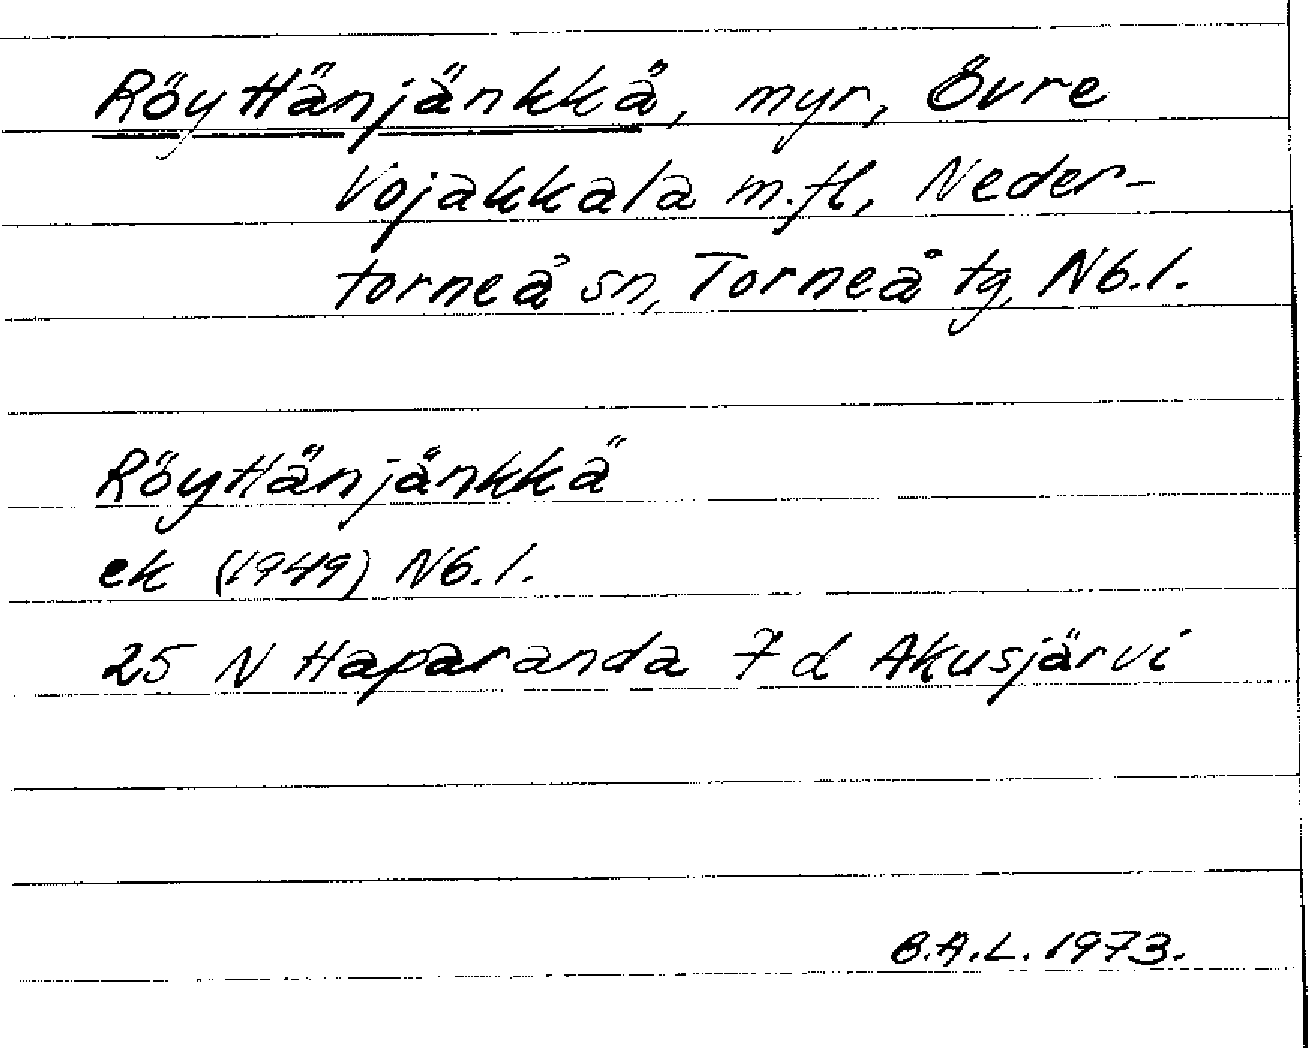 Röyttänjänkkä, myr, Övre
Vojakkala m.fl, Neder-
torneå sn, Torneå tg, Nb.l.
Röyttänjänkkä
ek (1949) Nb.l.
25 N Haparanda 7d Akusjärvi
B.A.L. 1973.